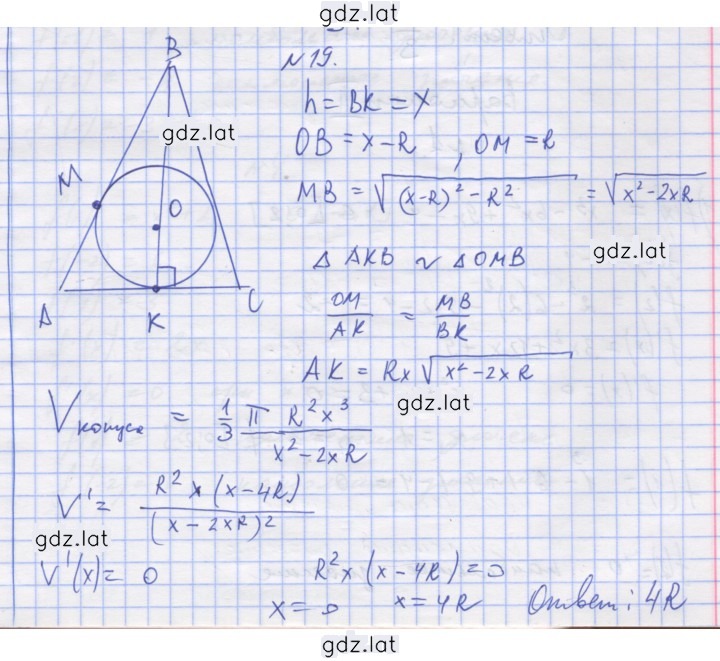 gdz.lat
№19.
B
h = BK = x
gdz.lat
OB = x - R, OM = R
M
O
MB = √((x-R)² - R²) = √(x² - 2xR)
gdz.lat
Δ AKB ~ Δ OMB
A
K
C
OM/AK = MB/BK
AK = Rx √(x² - 2xR)
gdz.lat
Vконуса = 1/3 π R²x³/(x² - 2xR)
V' = R²x(x - 4R)/(x - 2xR)²
gdz.lat
V'(x) = 0
R²x(x - 4R) = 0
x = 0
x = 4R
Ответ: 4R
gdz.lat